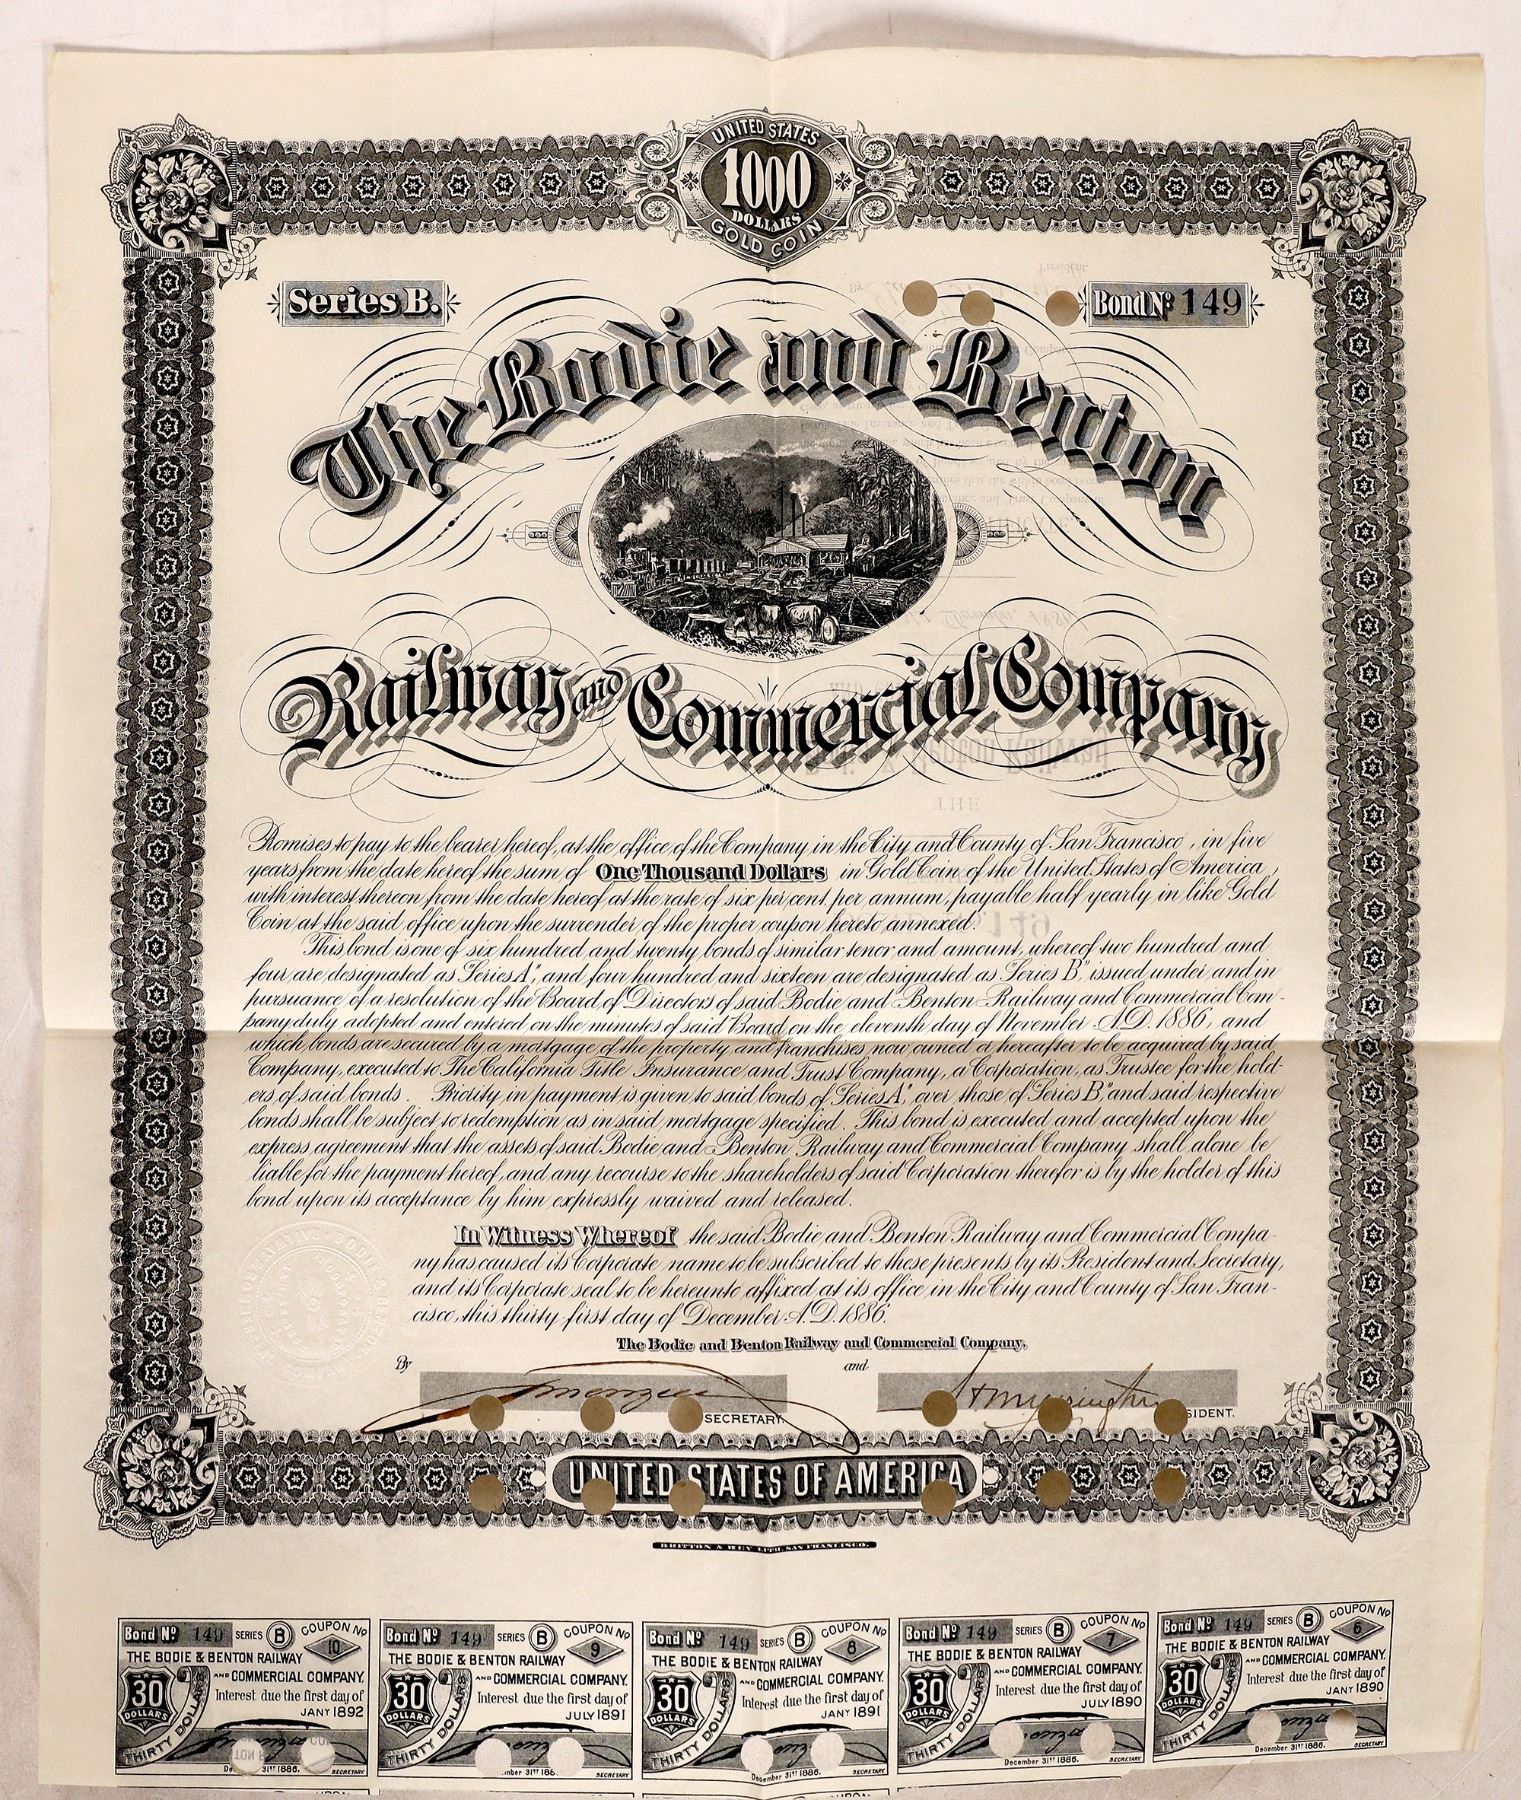 UNITED STATES
1000
DOLLARS
GOLD COIN
Series B.
Bond No 149
The Bodie and Benton
Railway and Commercial Company
Promises to pay to the bearer hereof, at the office of the Company in the City and County of San Francisco, in five
years from the date hereof the sum of One Thousand Dollars in Gold Coin of the United States of America,
with interest thereon from the date hereof at the rate of six per cent per annum, payable half yearly in like Gold
Coin at the said office upon the surrender of the proper coupon hereto annexed.
This bond is one of six hundred and twenty bonds of similar tenor and amount, whereof two hundred and
four are designated as "Series A", and four hundred and sixteen are designated as "Series B", issued under and in
pursuance of a resolution of the Board of Directors of said Bodie and Benton Railway and Commercial Com-
pany duly adopted and entered on the minutes of said Board, on the eleventh day of November A.D. 1886, and
which bonds are secured by a mortgage of the property and franchises now owned or hereafter to be acquired by said
Company, executed to The California Title Insurance and Trust Company, a Corporation, as Trustee for the hold-
ers of said bonds. Priority in payment is given to said bonds of "Series A", over those of "Series B", and said respective
bonds shall be subject to redemption as in said mortgage specified. This bond is executed and accepted upon the
express agreement that the assets of said Bodie and Benton Railway and Commercial Company shall alone be
liable for the payment hereof, and any recourse to the shareholders of said Corporation therefor is by the holder of this
bond upon its acceptance by him expressly waived and released.
In Witness Whereof the said Bodie and Benton Railway and Commercial Compa-
ny has caused its Corporate name to be subscribed to these presents by its President and Secretary,
and its Corporate seal to be hereunto affixed at its office in the City and County of San Fran-
cisco, this thirty-first day of December A.D. 1886.
The Bodie and Benton Railway and Commercial Company,
By and
SECRETARY. SIDENT.
UNITED STATES OF AMERICA
BRITTON & REY LITH. SAN FRANCISCO.
Bond No 149 SERIES B COUPON No 10
THE BODIE & BENTON RAILWAY
AND COMMERCIAL COMPANY.
30 DOLLARS
THIRTY DOLLARS
Interest due the first day of
JANY 1892
31st 1886.
SECRETARY
Bond No 149 SERIES B COUPON No 9
THE BODIE & BENTON RAILWAY
AND COMMERCIAL COMPANY.
30 DOLLARS
THIRTY DOLLARS
Interest due the first day of
JULY 1891
mber 31st 188
SECRETARY
Bond No 149 SERIES B COUPON No 8
THE BODIE & BENTON RAILWAY
AND COMMERCIAL COMPANY.
30 DOLLARS
THIRTY DOLLARS
Interest due the first day of
JANY 1891
December 31st 1886.
SECRETARY
Bond No 149 SERIES B COUPON No 7
THE BODIE & BENTON RAILWAY
AND COMMERCIAL COMPANY.
30 DOLLARS
THIRTY DOLLARS
Interest due the first day of
JULY 1890
December 31st 1886.
SECRETARY
Bond No 149 SERIES B COUPON No 6
THE BODIE & BENTON RAILWAY
AND COMMERCIAL COMPANY.
30 DOLLARS
THIRTY DOLLARS
Interest due the first day of
JANY 1890
December 31st 1886.
SECRETARY